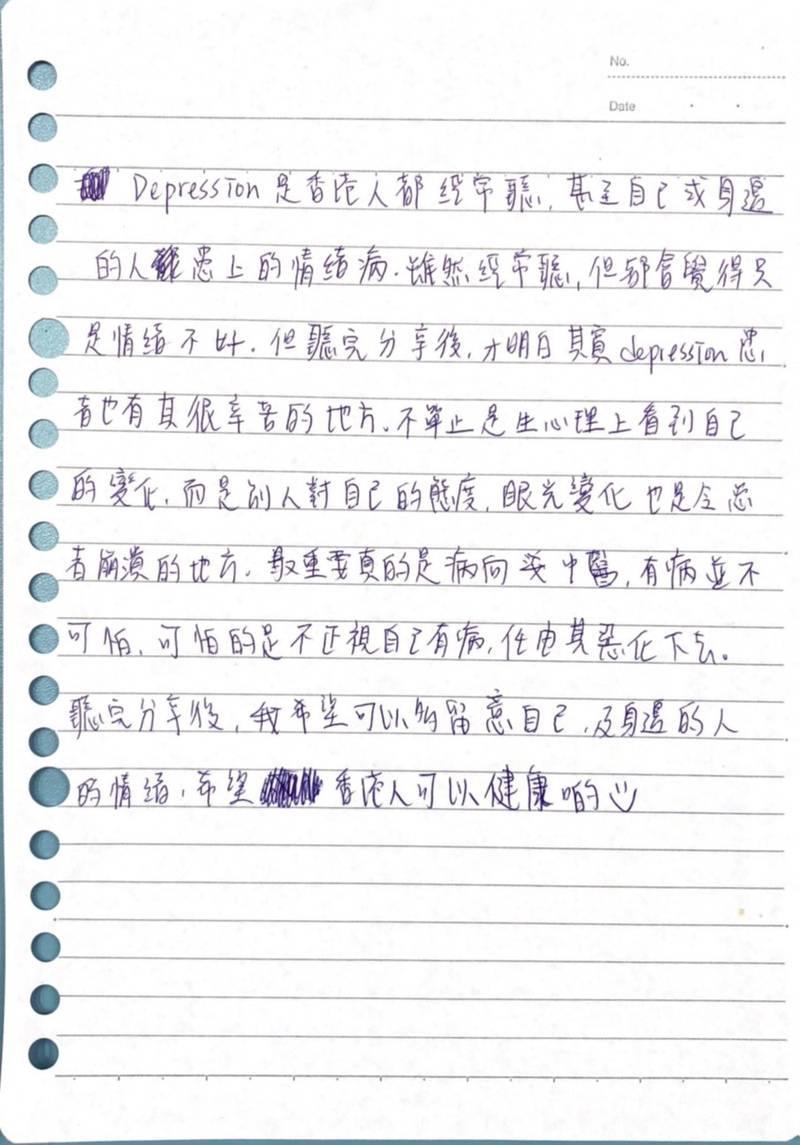 No.
Date
Depression 是香港人都經常聽,甚至自己或身邊
的人患上的情緒病.雖然經常聽,但都會覺得只
是情緒不好.但聽完分享後,才明白其實depression患
者也有其很辛苦的地方.不單止是生心理上看到自己
的變化,而是別人對自己的態度,眼光變化也是令患
者崩潰的地方.最重要真的是病向淺中醫,有病並不
可怕,可怕的是不正視自己有病,任由其惡化下去。
聽完分享後,我希望可以多留意自己,及身邊的人
的情緒,希望香港人可以健康啲